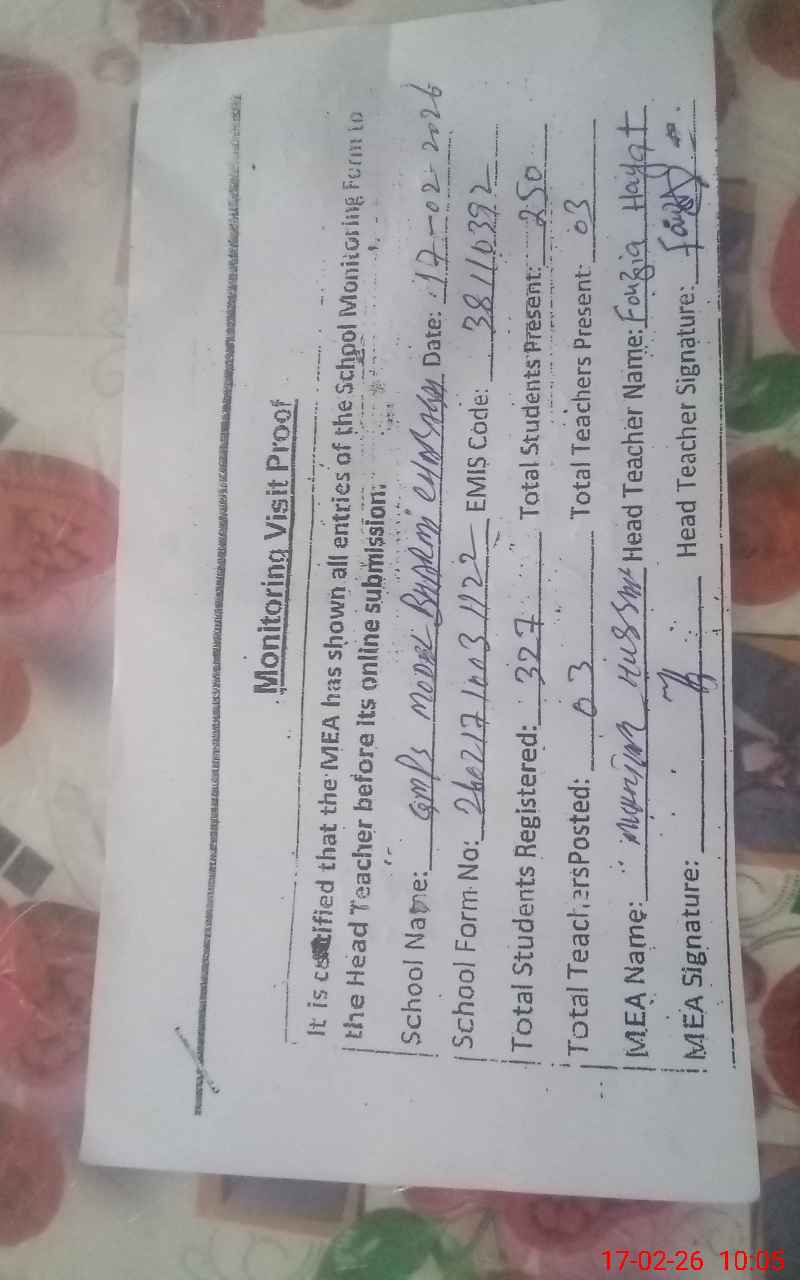 Monitoring Visit Proof
It is certified that the MEA has shown all entries of the School Monitoring Form to
the Head Teacher before its online submission.
School Name: GMPS MODEL BHARMI Date: 17-02-2026
School Form No: EMIS Code: 38110392
Total Students Registered: 327 Total Students Present: 250
Total Teachers Posted: 03 Total Teachers Present: 03
MEA Name: Head Teacher Name: Fouzia Hayat
MEA Signature: Head Teacher Signature:
17-02-26 10:05